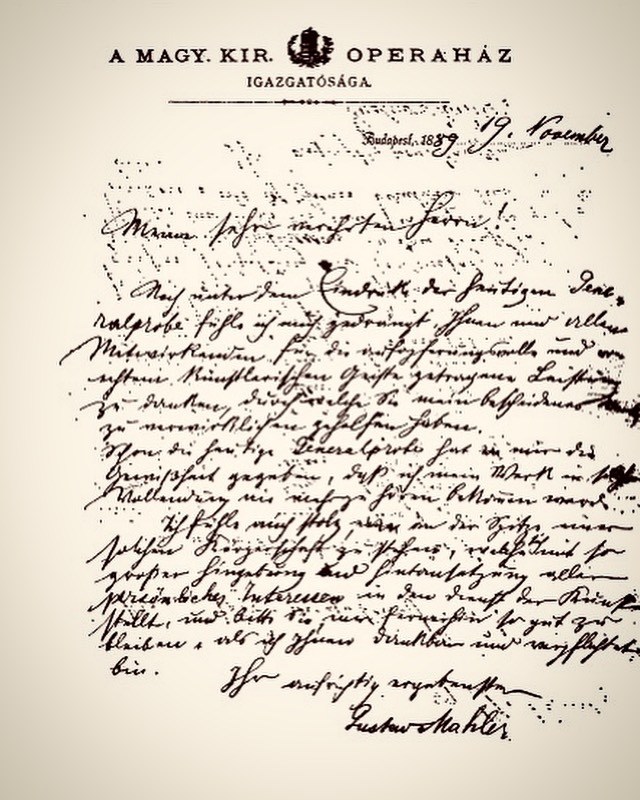 A MAGY. KIR. OPERAHÁZ
IGAZGATÓSÁGA.
Budapest, 1889 19. November
Meine sehr verehrten Herrn!
Noch unter dem Eindruck der heutigen Gene-
ralprobe fühle ich mich gedrängt Ihnen und allen
Mitwirkenden für die aufopferungsvolle und von
echtem künstlerischen Geiste getragene Leistung
zu danken, durch welche Sie mein bescheidenes
zu verwirklichen geholfen haben.
Schon die heutige Generalprobe hat mir die
Gewißheit gegeben, daß ich mein Werk in solcher
Vollendung nie mehr zu hören bekommen werde.
Ich fühle mich stolz, an der Spitze einer
solchen Körperschaft zu stehen, welche mit so
großer Hingebung und Hintansetzung aller
persönlichen Interessen in den Dienst der Kunst
stellt, und bitte Sie mir fernerhin so gut zu
bleiben, als ich Ihnen dankbar und verpflichtet
bin.
Ihr aufrichtig ergebenster
Gustav Mahler